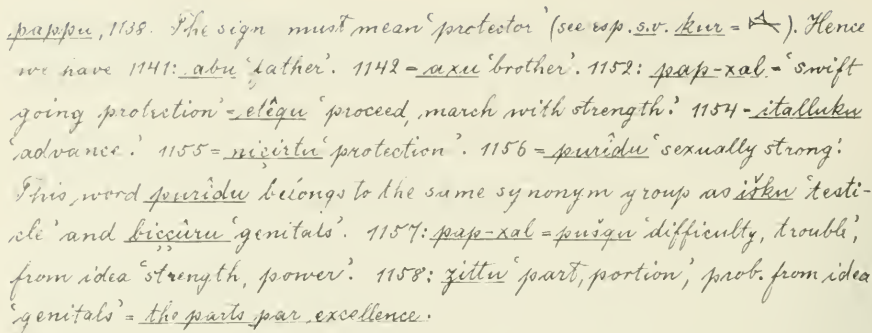 pappu, 1138. The sign must mean 'protector' (see esp. s.v. kur = ). Hence
we have 1141: abu 'father'. 1142 = axu 'brother'. 1152: pap-xal = 'swift
going protection' = etêqu 'proceed, march with strength'. 1154 = italluku
'advance'. 1155 = niçirtu 'protection'. 1156 = purîdu 'sexually strong'.
This word purîdu belongs to the same synonym group as išku 'testi-
cle' and biççûru 'genitals'. 1157: pap-xal = pušqu 'difficulty, trouble',
from idea 'strength, power'. 1158: zittu 'part, portion', prob. from idea
'genitals' = the parts par excellence.